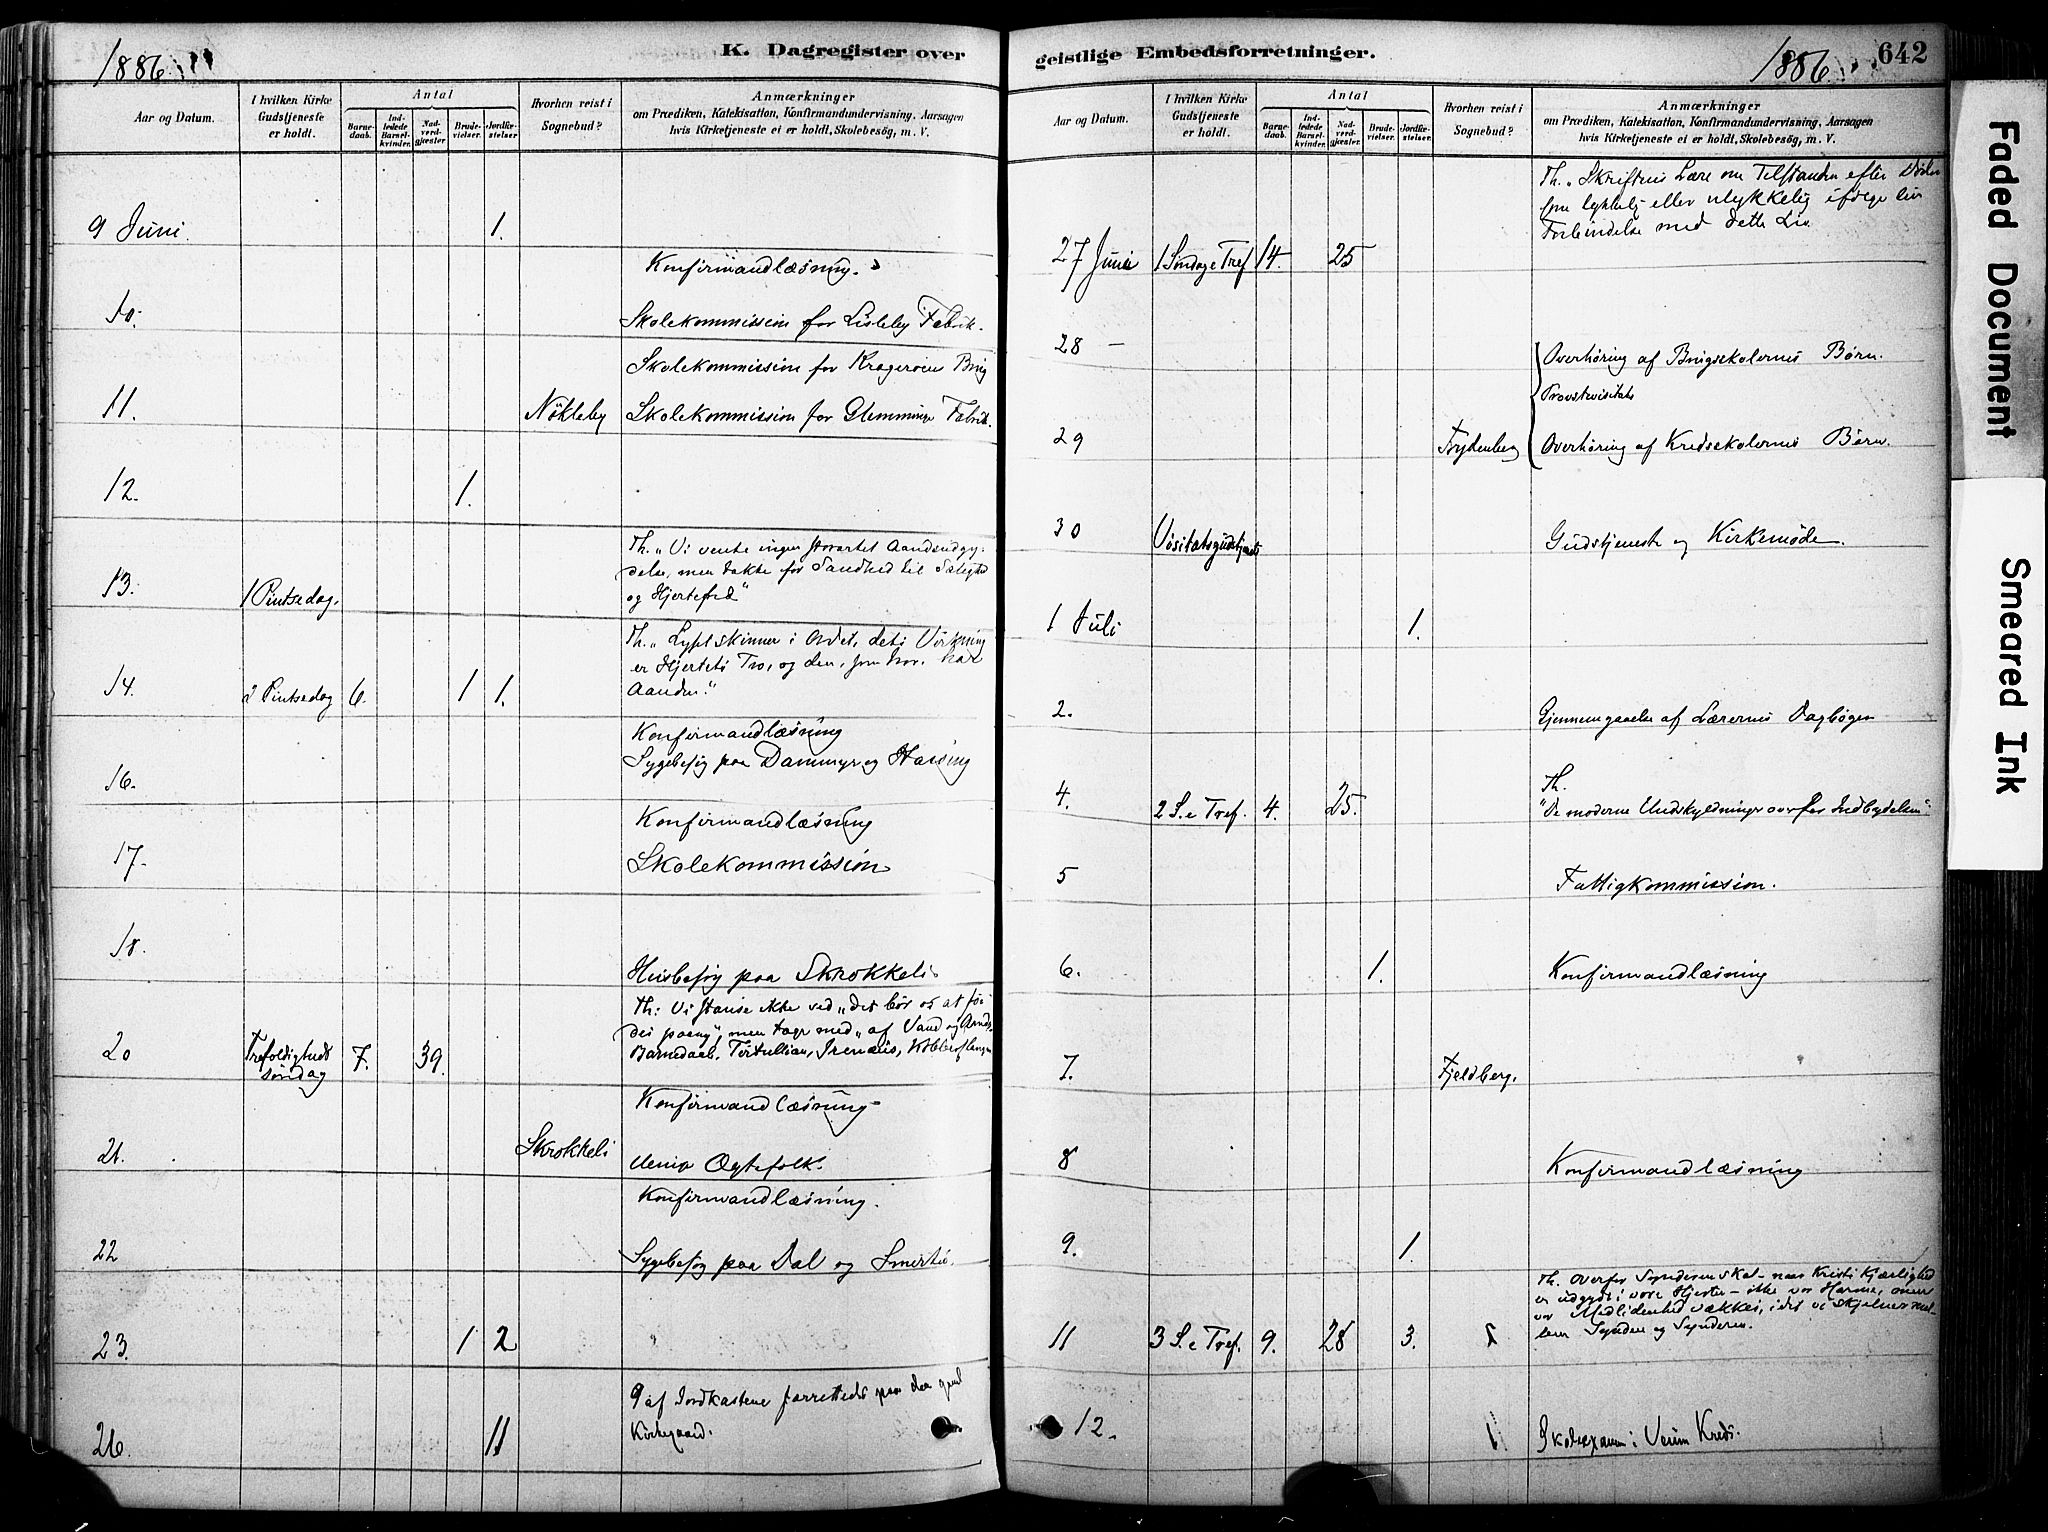 1886.
K. Dagregister over
Aar og Datum.
I hvilken Kirke Gudstjeneste er holdt.
Antal
Barnedaab.
Indledede Barselkvinder.
Nadverdgjæster
Brudevielser.
Jordfæstelser
Hvorhen reist i Sognebud?
Anmærkninger
om Prædiken, Katekisation, Konfirmandundervisning, Aarsagen
hvis Kirketjeneste ei er holdt, Skolebesög, m. V.
9 Juni. 1.
Konfirmandlæsning.
10.
Skolekommission for Lisleby Fabrik.
Skolekommission for Kragerøen Brug
11. Nökleby Skolekommission for Glemminge Fabrik.
12. 1.
Th. "Vi vente ingen storartet Aandsudgy-
delse, men takke for Sandhed til Salighed
13. 1 Pintsedag. og Hjertefred"
Th. "Lyset skinner i Ordet, dets Virkning
er Hjertets Tro, og den, som tror, har
14. 2 Pintsedag 6. 1 1. Aanden."
Konfirmandlæsning
16. Sygebesøg paa Dammyr og
Konfirmandlæsning
17. Skolekommission
18.
Husbesøg paa Skrokkeli
Th: Vi stanse ikke ved "det bør os at fø-
des paany", men tage med "af Vand og Aand"
20 Trefoldigheds søndag 7. 39. Barnedaab. Tertullian, Irenæus,
Konfirmandlæsning
21. Skrokkeli Ægtefolk.
Konfirmandlæsning.
22 Sygebesøg paa Dal og
23. 1 2
9 af Jordkastene forrettedes paa den gamle
26. 11 Kirkegaard.
geistlige Embedsforretninger.
1886.
642
Aar og Datum.
I hvilken Kirke Gudstjeneste er holdt.
Antal
Barnedaab.
Indledede Barselkvinder.
Nadverdgjæster
Brudevielser.
Jordfæstelser.
Hvorhen reist i Sognebud?
Anmærkninger
om Prædiken, Katekisation, Konfirmandundervisning, Aarsagen
hvis Kirketjeneste ei er holdt, Skolebesög, m. V.
Th. "Skriftens Lære om Tilstanden efter Døden
som lykkelig eller ulykkelig ifølge sin
Forbindelse med dette Liv.
27 Juni 1 Søndag e Tref 14. 25
28 - Overhøring af Brugsskolernes Børn.
Provstevisitats
29 Frydenberg Overhøring af Kredsskolernes Børn.
30 Visitatsgudstjeneste Gudstjeneste og Kirkemøde.
1 Juli 1.
2. Gjennemgaaelse af Lærernes Dagbøger
Th.
4. 2 S. e Tref. 4. 25. "De moderne Undskyldninger overfor Indbydelsen".
5 Fattigkommission.
6. 1. Konfirmandlæsning
7. Fjeldberg.
8 Konfirmandlæsning
9. 1.
Th. Overfor Synderen skal - naar Kristi Kjærlighed
er udgydt i vore Hjerter - ikke vor Harme, men
vor Medlidenhed vækkes, idet vi skjelner mel-
11 3 S. e Tref. 9. 28 3. lem Synden og Synderen.
12. Skolexamen i Veum Kreds.
Faded Document
Smeared Ink